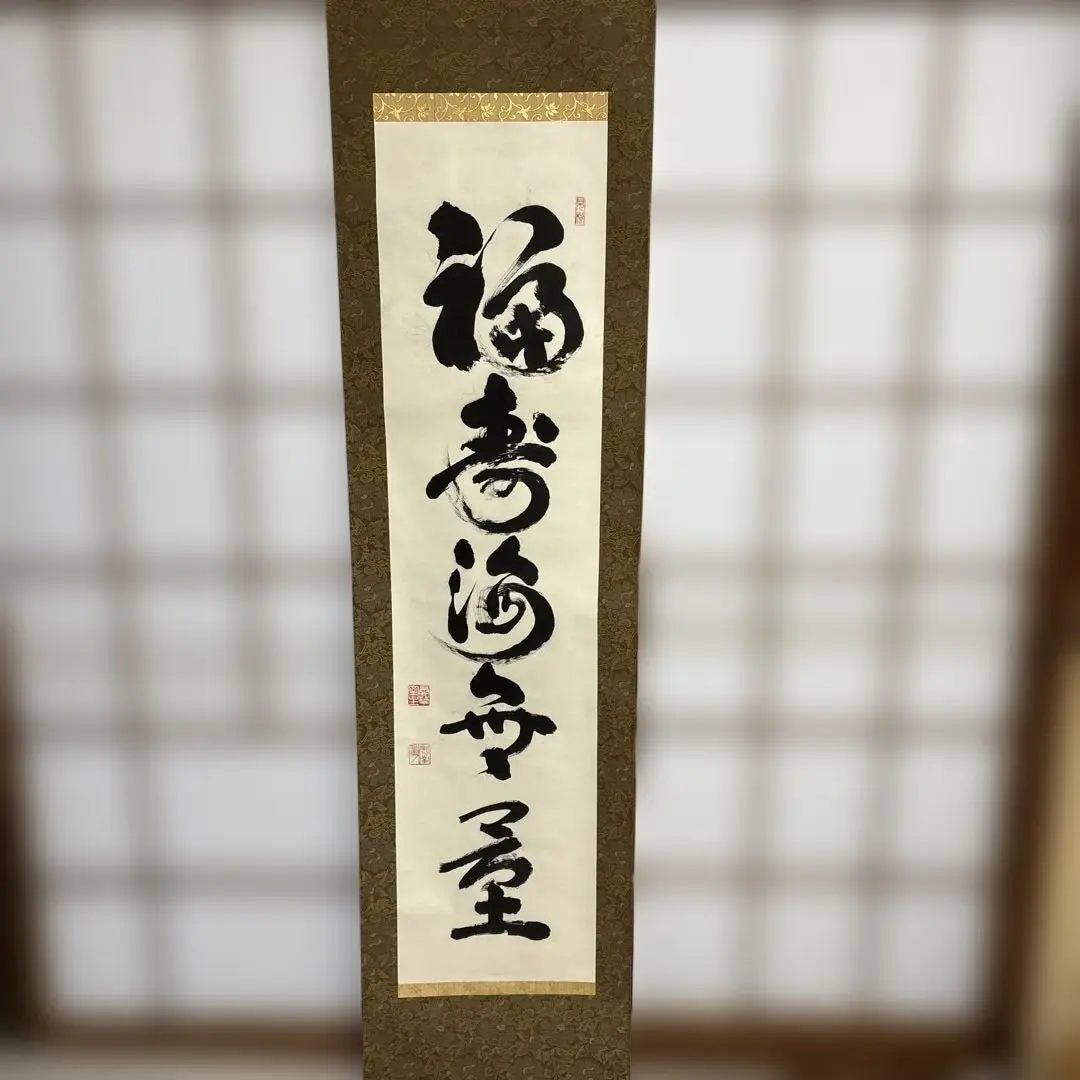 福寿海無量